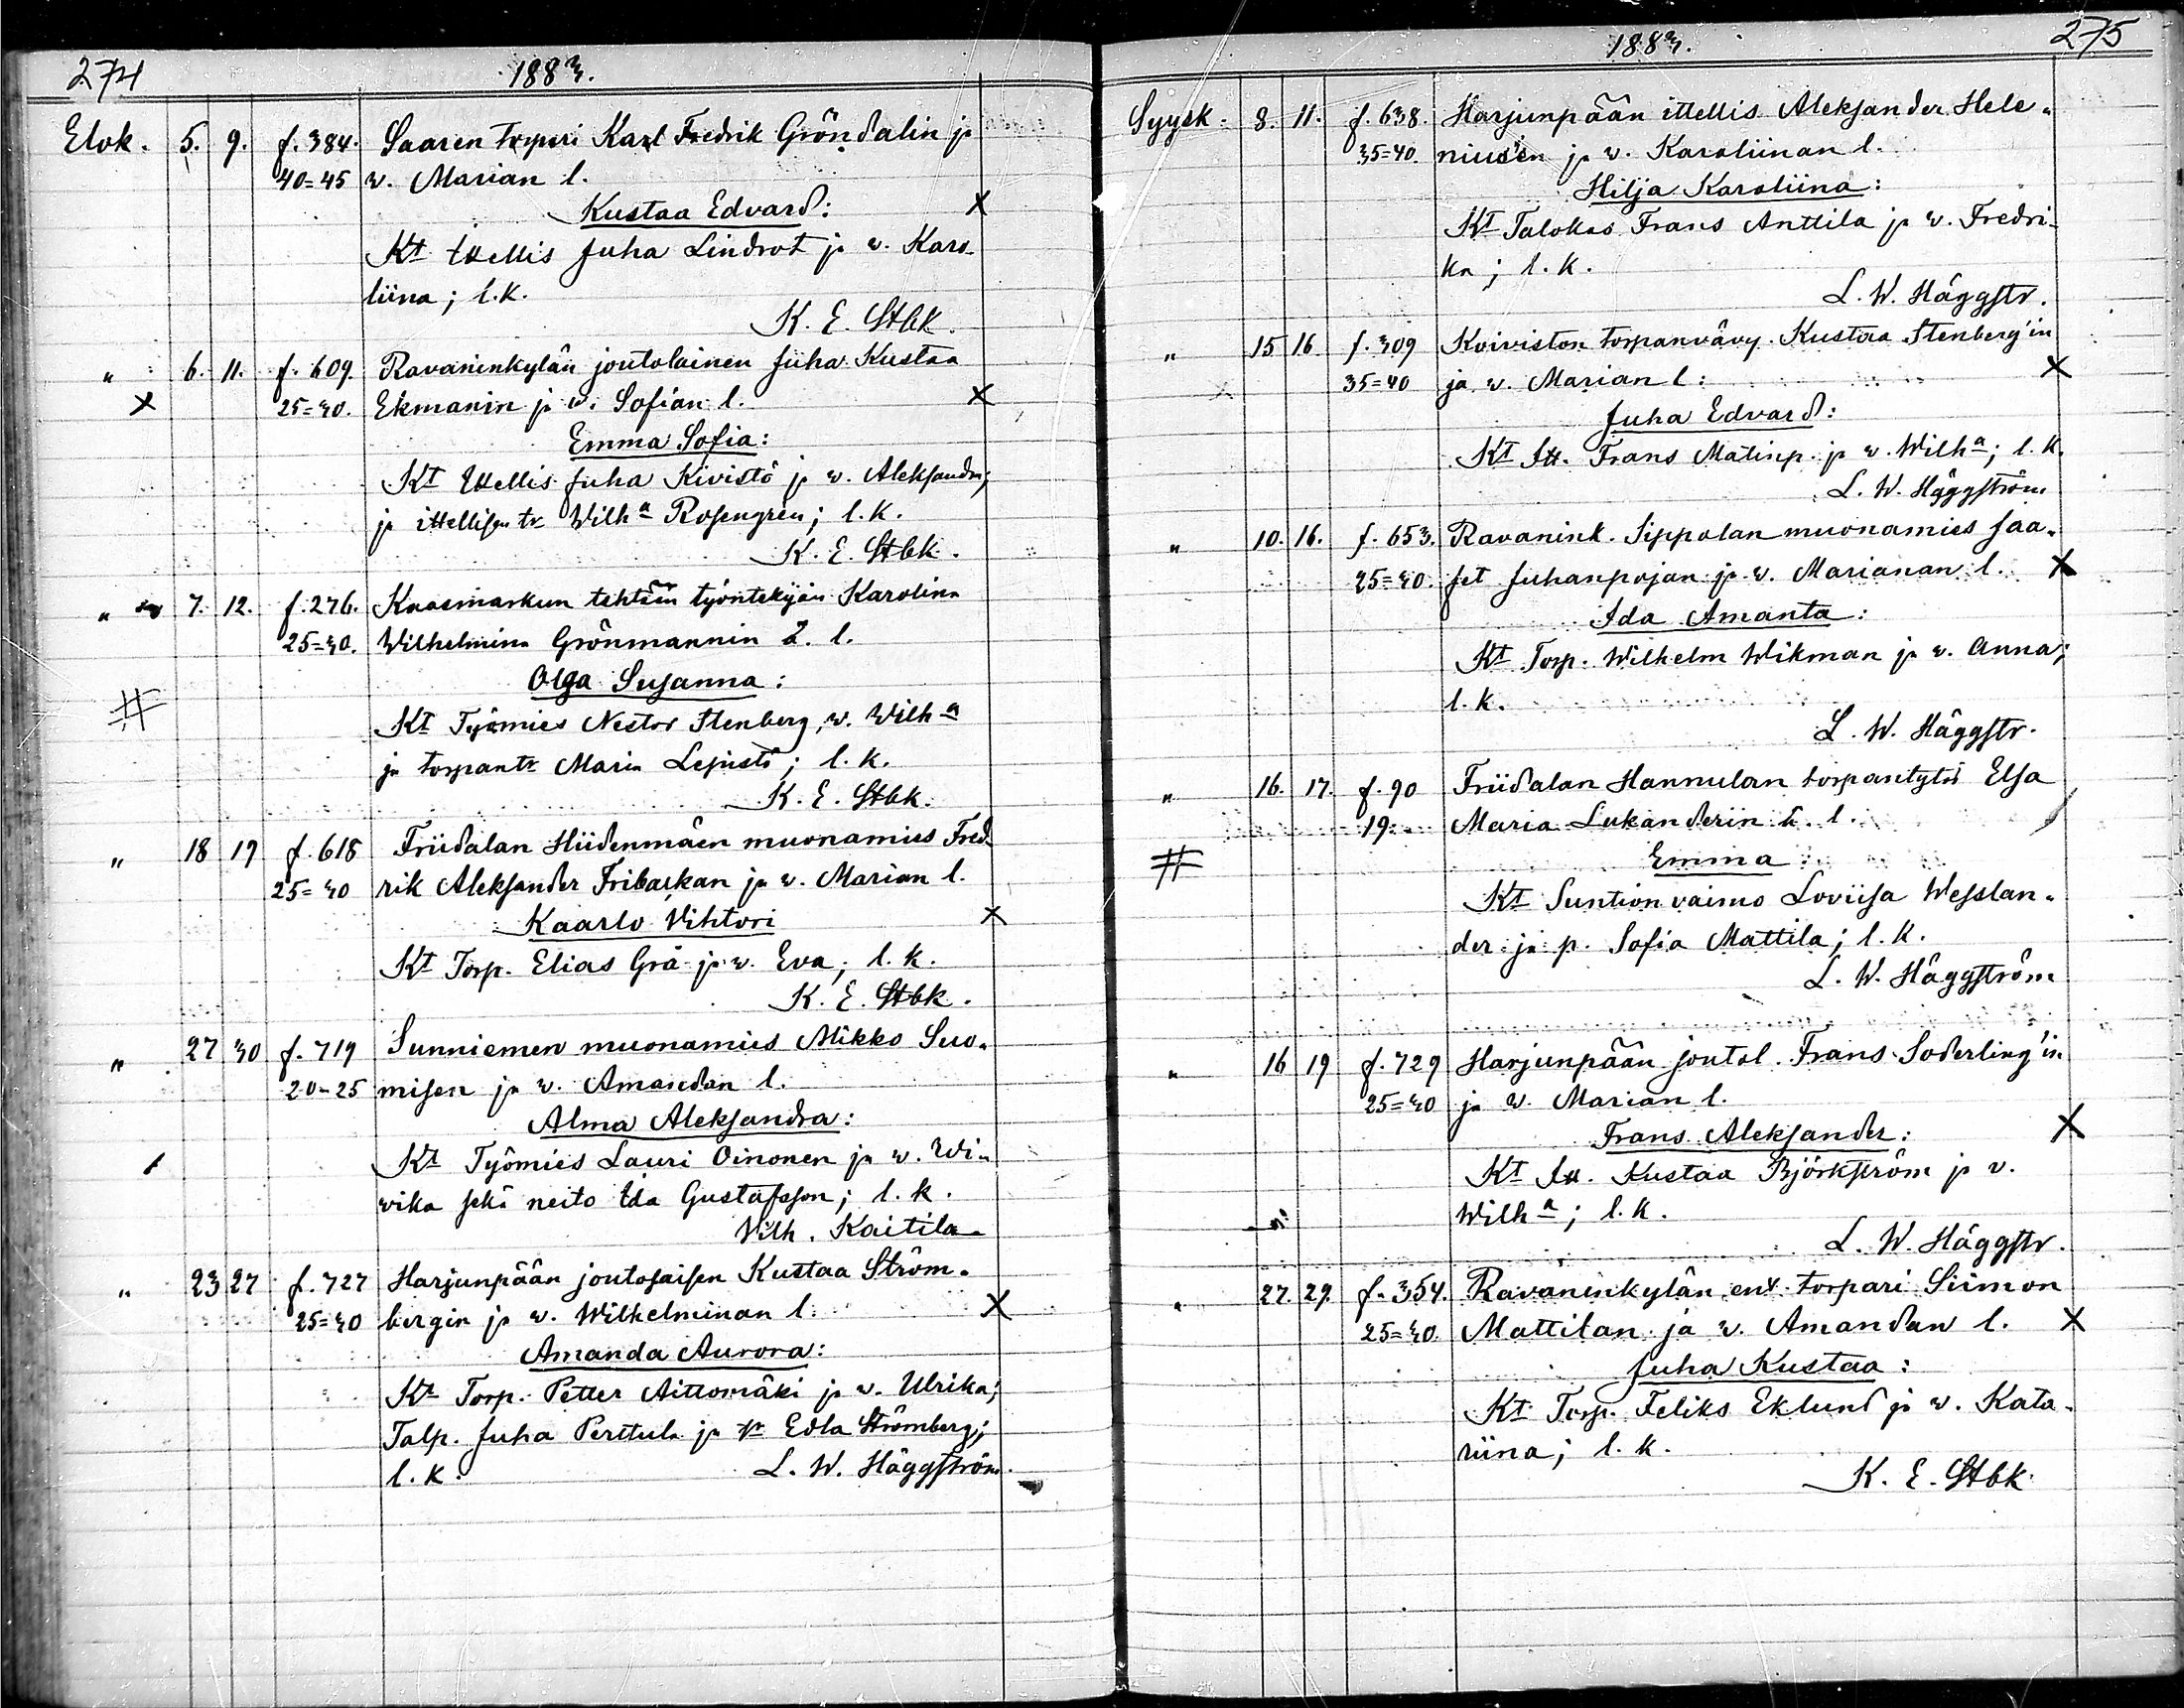 274
1883.
Elok. 5. 9. f. 384. Saaren torpari Karl Fredrik Gröndalin ja
40=45 w. Marian l.
Kustaa Edvard: X
Kt Ittellis Juha Lindrot ja w. Karo-
liina; l.k.
K. E. Stbk.
" 6. 11. f. 609. Ravaninkylän joutolainen Juha Kustaa
X 25=30. Ekmanin ja w. Sofian l. X
Emma Sofia:
Kt Ittellis Juha Kivistö ja w. Aleksandra;
ja ittellisen tr Wilha Rosengren; l.k.
K. E. Stbk.
" 7. 12. f. 276. Kaasmarkun tehtään työntekijän Karolina
25=30. Wilhelmina Grönmannin ä. l.
Olga Susanna:
# Kt Työmies Nestor Stenberg, w. Wilha
ja torpantr Maria Lepistö; l. k.
K. E. Stbk.
" 18 19 f. 618 Friidalan Hiidenmäen muonamies Fred-
25=30 rik Aleksander Fribackan ja w. Marian l.
Kaarlo Vihtori X
Kt Torp. Elias Grå ja w. Eva; l. k.
K. E. Stbk.
" 27 30 f. 719 Sunniemen muonamies Mikko Suo-
20-25 misen ja w. Amandan l.
Alma Aleksandra:
Kt Työmies Lauri Oinonen ja w. Wi-
vika sekä neito Ida Gustafsson; l. k.
Vilh. Kaitila
" 23 27 f. 727 Harjunpään joutolaisen Kustaa Ström-
25=30 bergin ja w. Wilhelminan l. X
Amanda Aurora:
Kt Torp. Petter Aittomäki ja w. Ulrika;
Talp. Juha Perttula ja tr Edla Strömberg;
l. k. L. W. Häggström.
1883.
275
Syysk. 8. 11. f. 638. Harjunpään ittellis Aleksander Hele-
35=40. nius'en ja w. Karoliinan l.
Hilja Karoliina:
Kt Talokas Frans Anttila ja w. Fredri-
ka; l. k.
L. W. Häggstr.
" 15 16 f. 309 Koiviston torpanvävy Kustaa Stenberg'in
35=40 ja w. Marian l: X
Juha Edvard:
Kt Itt. Frans Mätinp. ja w. Wilha; l. k.
L. W. Häggström
" 10. 16. f. 653. Ravanink. Sippolan muonamies Jaa-
25=30. fet Juhanpojan ja w. Marianan l. X
Ida Amanta:
Kt Torp. Wilhelm Wikman ja w. Anna;
l. k.
L. W. Häggstr.
" 16. 17. f. 90 Friidalan Hannulan torpantytö Elsa
19 Maria Lukanderin ä. l.
# Emma:
Kt Suntion vaimo Loviisa Wesslan-
der ja p. Sofia Mattila; l. k.
L. W. Häggström
" 16 19 f. 729 Harjunpään joutol. Frans Soderling'in
25=30 ja w. Marian l.
Frans Aleksander: X
Kt Itt. Kustaa Björkström ja v.
Wilha; l. k.
L. W. Häggstr.
" 27. 29. f. 354. Ravaninkylän ent. torpari Siimon
25=30. Mattilan ja w. Amandan l. X
Juha Kustaa:
Kt Torp. Feliks Eklund ja w. Kata-
riina; l. k.
K. E. Stbk.